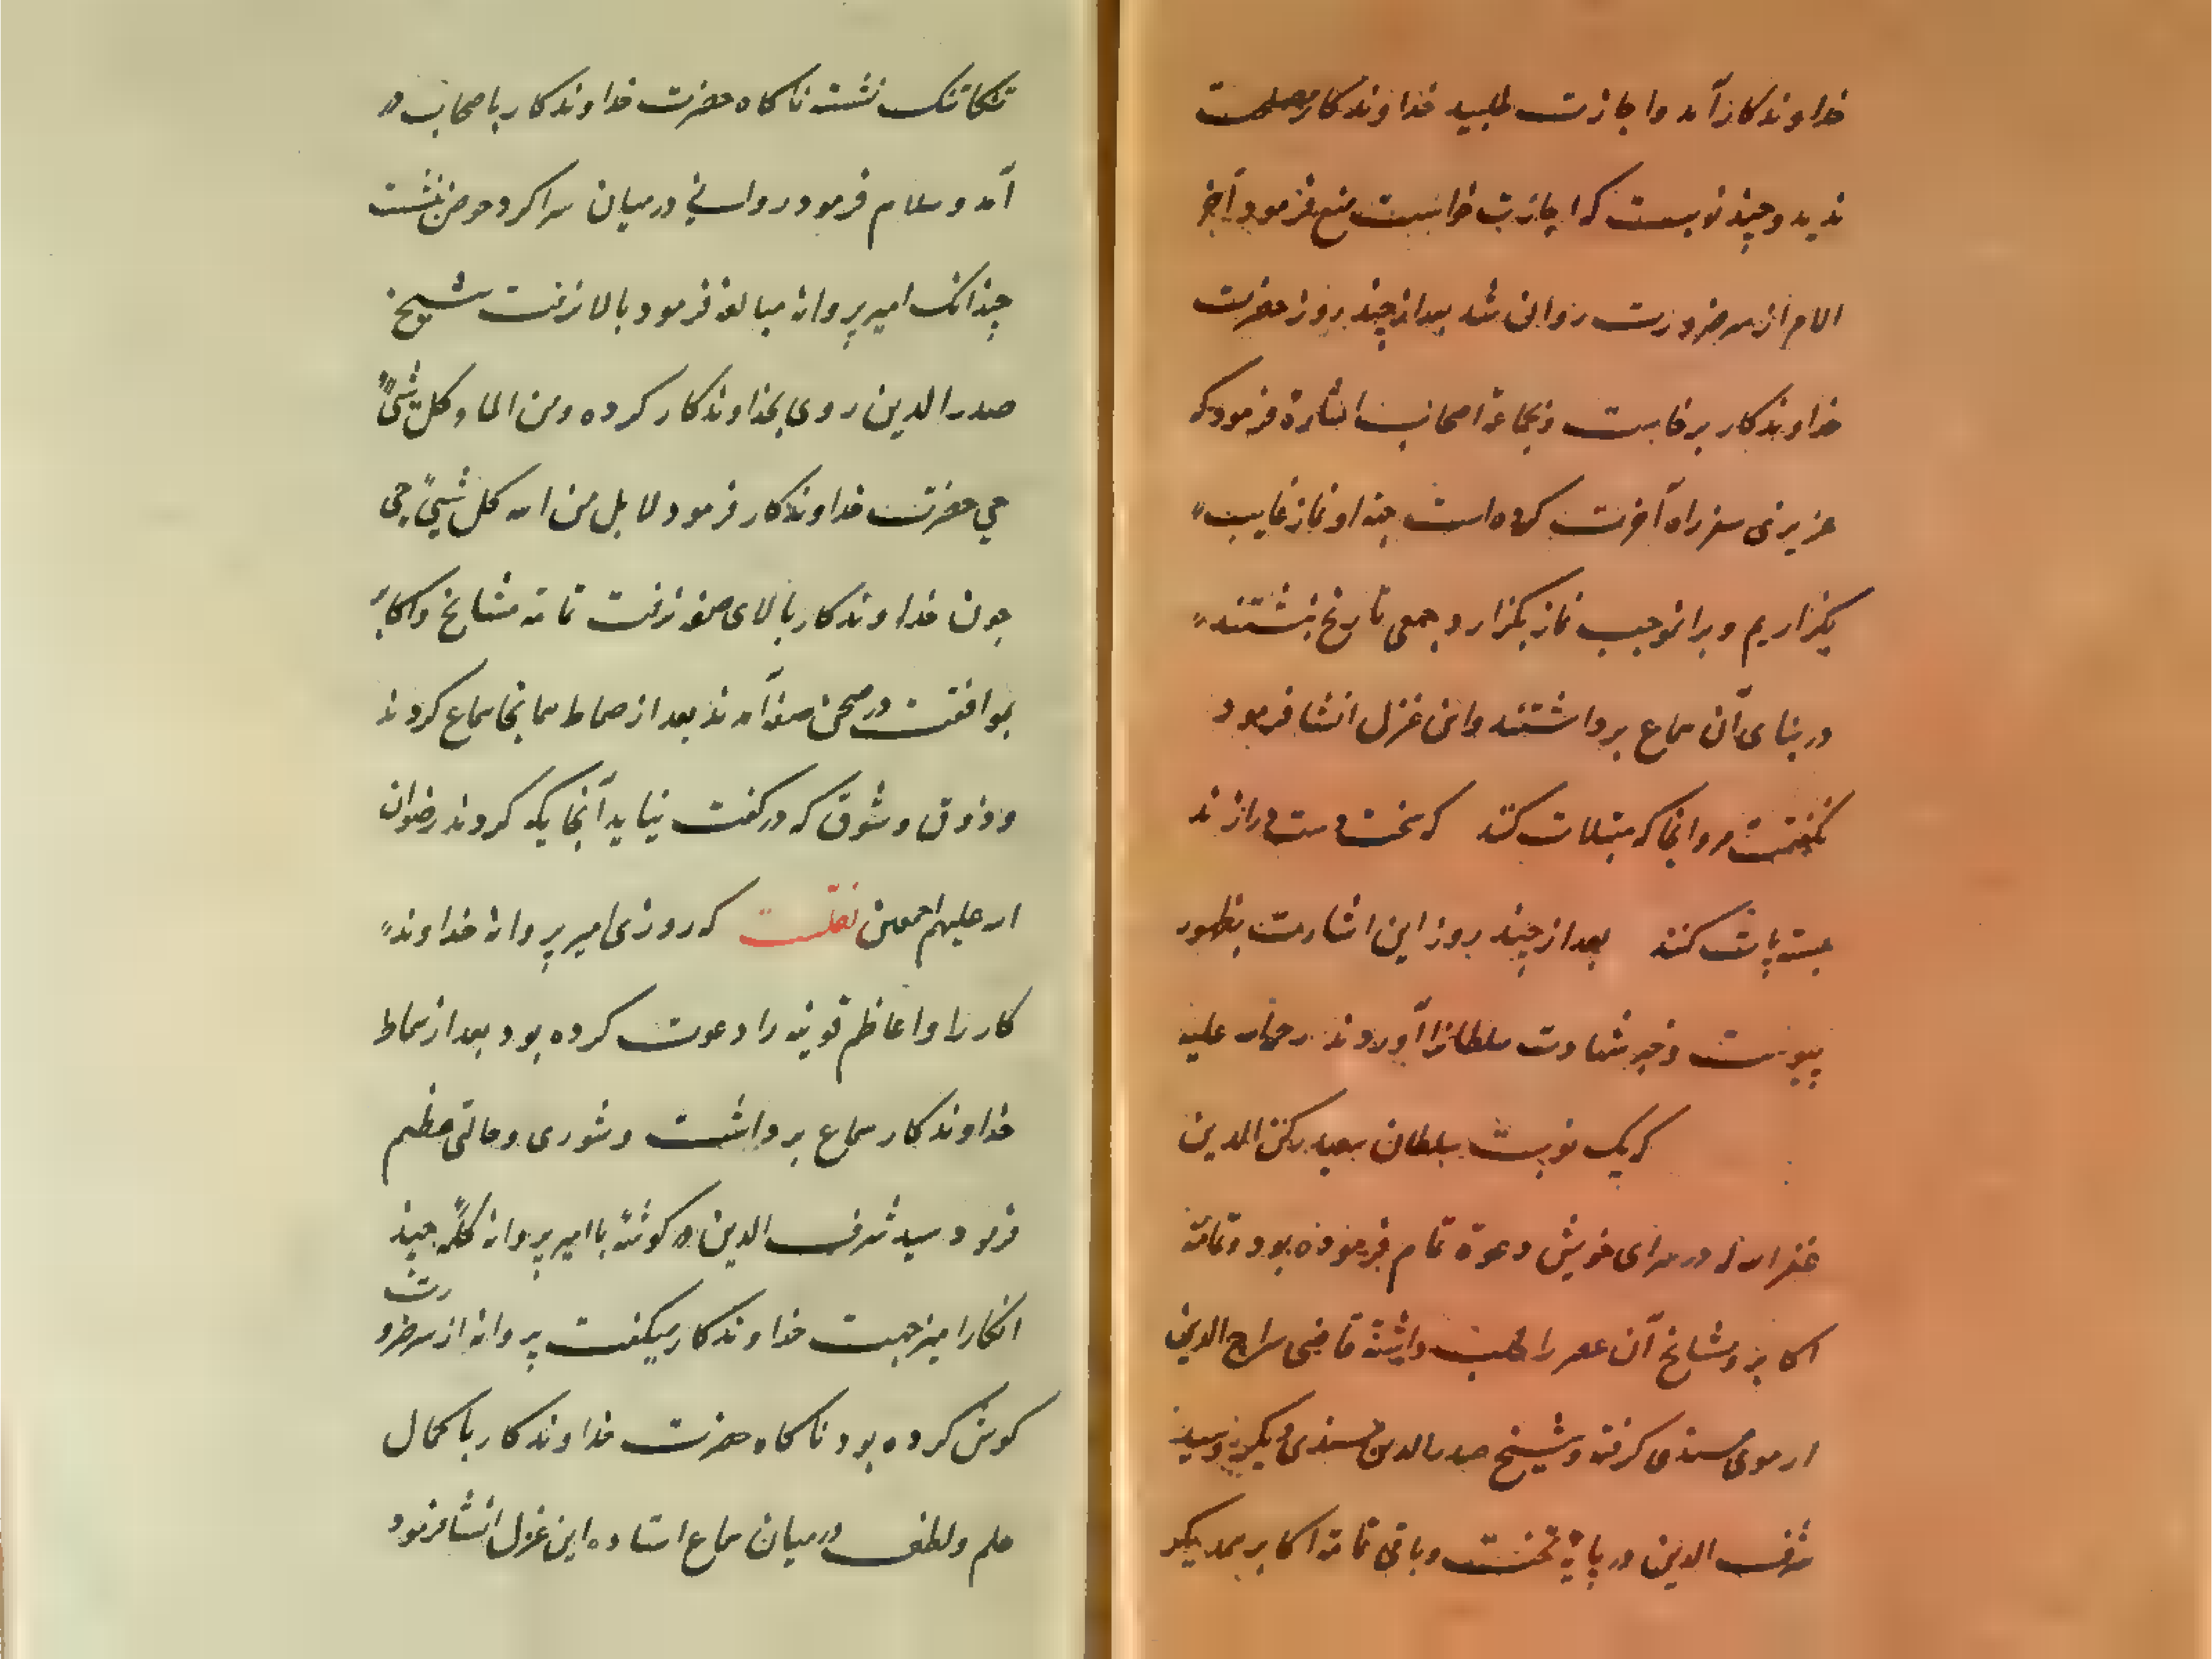 خداوندکار آمد و اجازت طلبید خداوندکار مصلحت
ندید و چند نوبت که اجازت خواست منع فرمود آخر
الامر از سر ضرورت روان شد بعد از چند روز حضرت
خداوندکار برخاست و بجماعة اصحاب اشارة فرمود که
عزیزی سفر راه آخرت کرده است جهة او نماز غایب
بگزاریم و برانموجب نماز بگزارد و جمعی تاریخ نبشتند
در بنای آن سماع برداشتند و این غزل انشا فرمود
نگفتمت مرو آنجا که مبتلات کنند که سخت دست درازند
بسته پات کنند بعد از چند روز این اشارت بظهور
پیوست و خبر شهادت سلطانرا آوردند رحمة الله علیه
که یک نوبت سلطان سعید رکن الدین
غفر الله له در سرای خویش دعوة تمام فرموده بود و تمامة
اکابر و مشایخ آن عصر را طلب داشتة قاضی سراج الدین
ارموی مسندی کرفته و شیخ صدرالدین مسندی دیگر و سید
شرف الدین در پایۀ تخت و باقی تمامة اکابر بهمدیکر
تنکاتنک نشسته ناکاه حضرت خداوندکار با صحاب در
آمد و سلام فرمود روانی در میان سرا کرد حوض بنشست
چندانک امیر پروانه مبالغه فرمود بالا نرفت شیخ
صدرالدین روی بخداوندکار کرده و من الماء کل شیءٍ
حی حضرت خداوندکار فرمود لا بل من الله کل شیءٍ حی
جون خداوندکار بالای صفه نرفت تمامة مشایخ و اکابر
بموافقت در صحن صفه آمدند بعد از صماط همانجا سماع کردند
و ذوق و شوق که در کفت نیاید آنجایکه کردند رضوان
الله علیهم اجمعین نقلست که روزی امیر پروانه خداوند
کار را و اعاظم قونیه را دعوت کرده بود بعد از سماط
خداوندکار سماع برداشت و شوری و حالتی عظیم
فرمود سید شرف الدین در کوشۀ با امیر پروانه کلمۀ جند
انکار امیز جهت خداوندکار میکفت پروانه از سر ضرورت
کوش کرده بود ناکاه حضرت خداوندکار با کمال
حلم و لطف در میان سماع استاده این غزل انشا فرمود